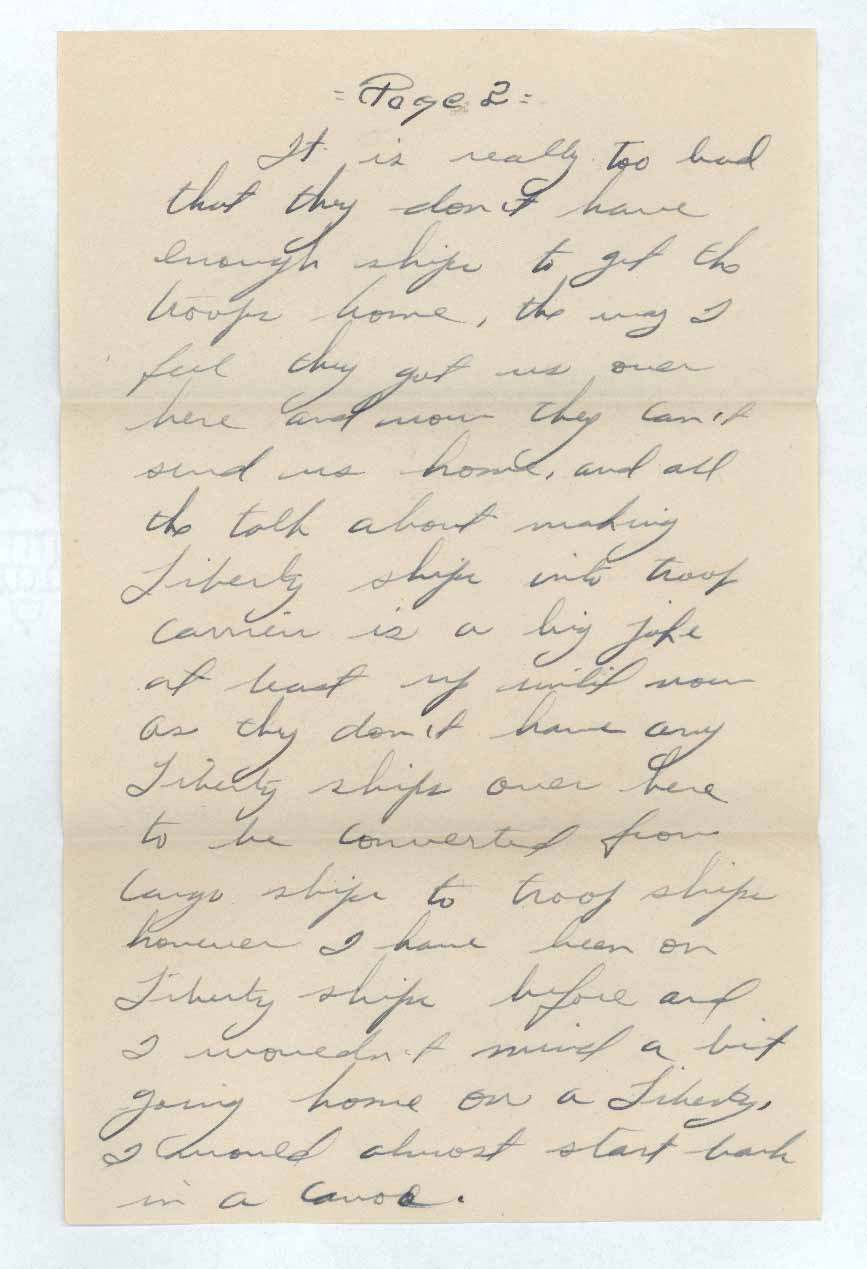 = Page 2 =
It is really too bad
that they don't have
enough ships to get the
troops home, the way I
feel they got us over
here and now they can't
send us home, and all
the talk about making
Liberty ships into troop
carriers is a big joke
at least up until now
as they don't have any
Liberty ships over here
to be converted from
cargo ships to troop ships
however I have been on
Liberty ships before and
I wouldn't mind a bit
going home on a Liberty,
I would almost start back
in a canoe.